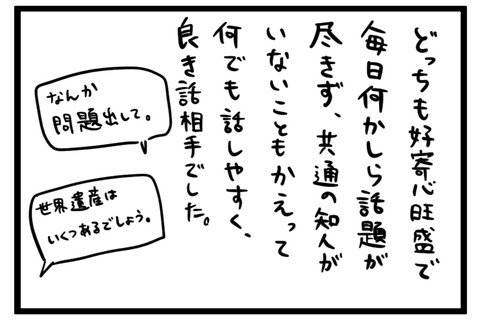 どっちも好寄心旺盛で
毎日何かしら話題が
尽きず、共通の知人が
いないこともかえって
何でも話しやすく、
良き話相手でした。
なんか
問題出して。
世界遺産は
いくつあるでしょう。